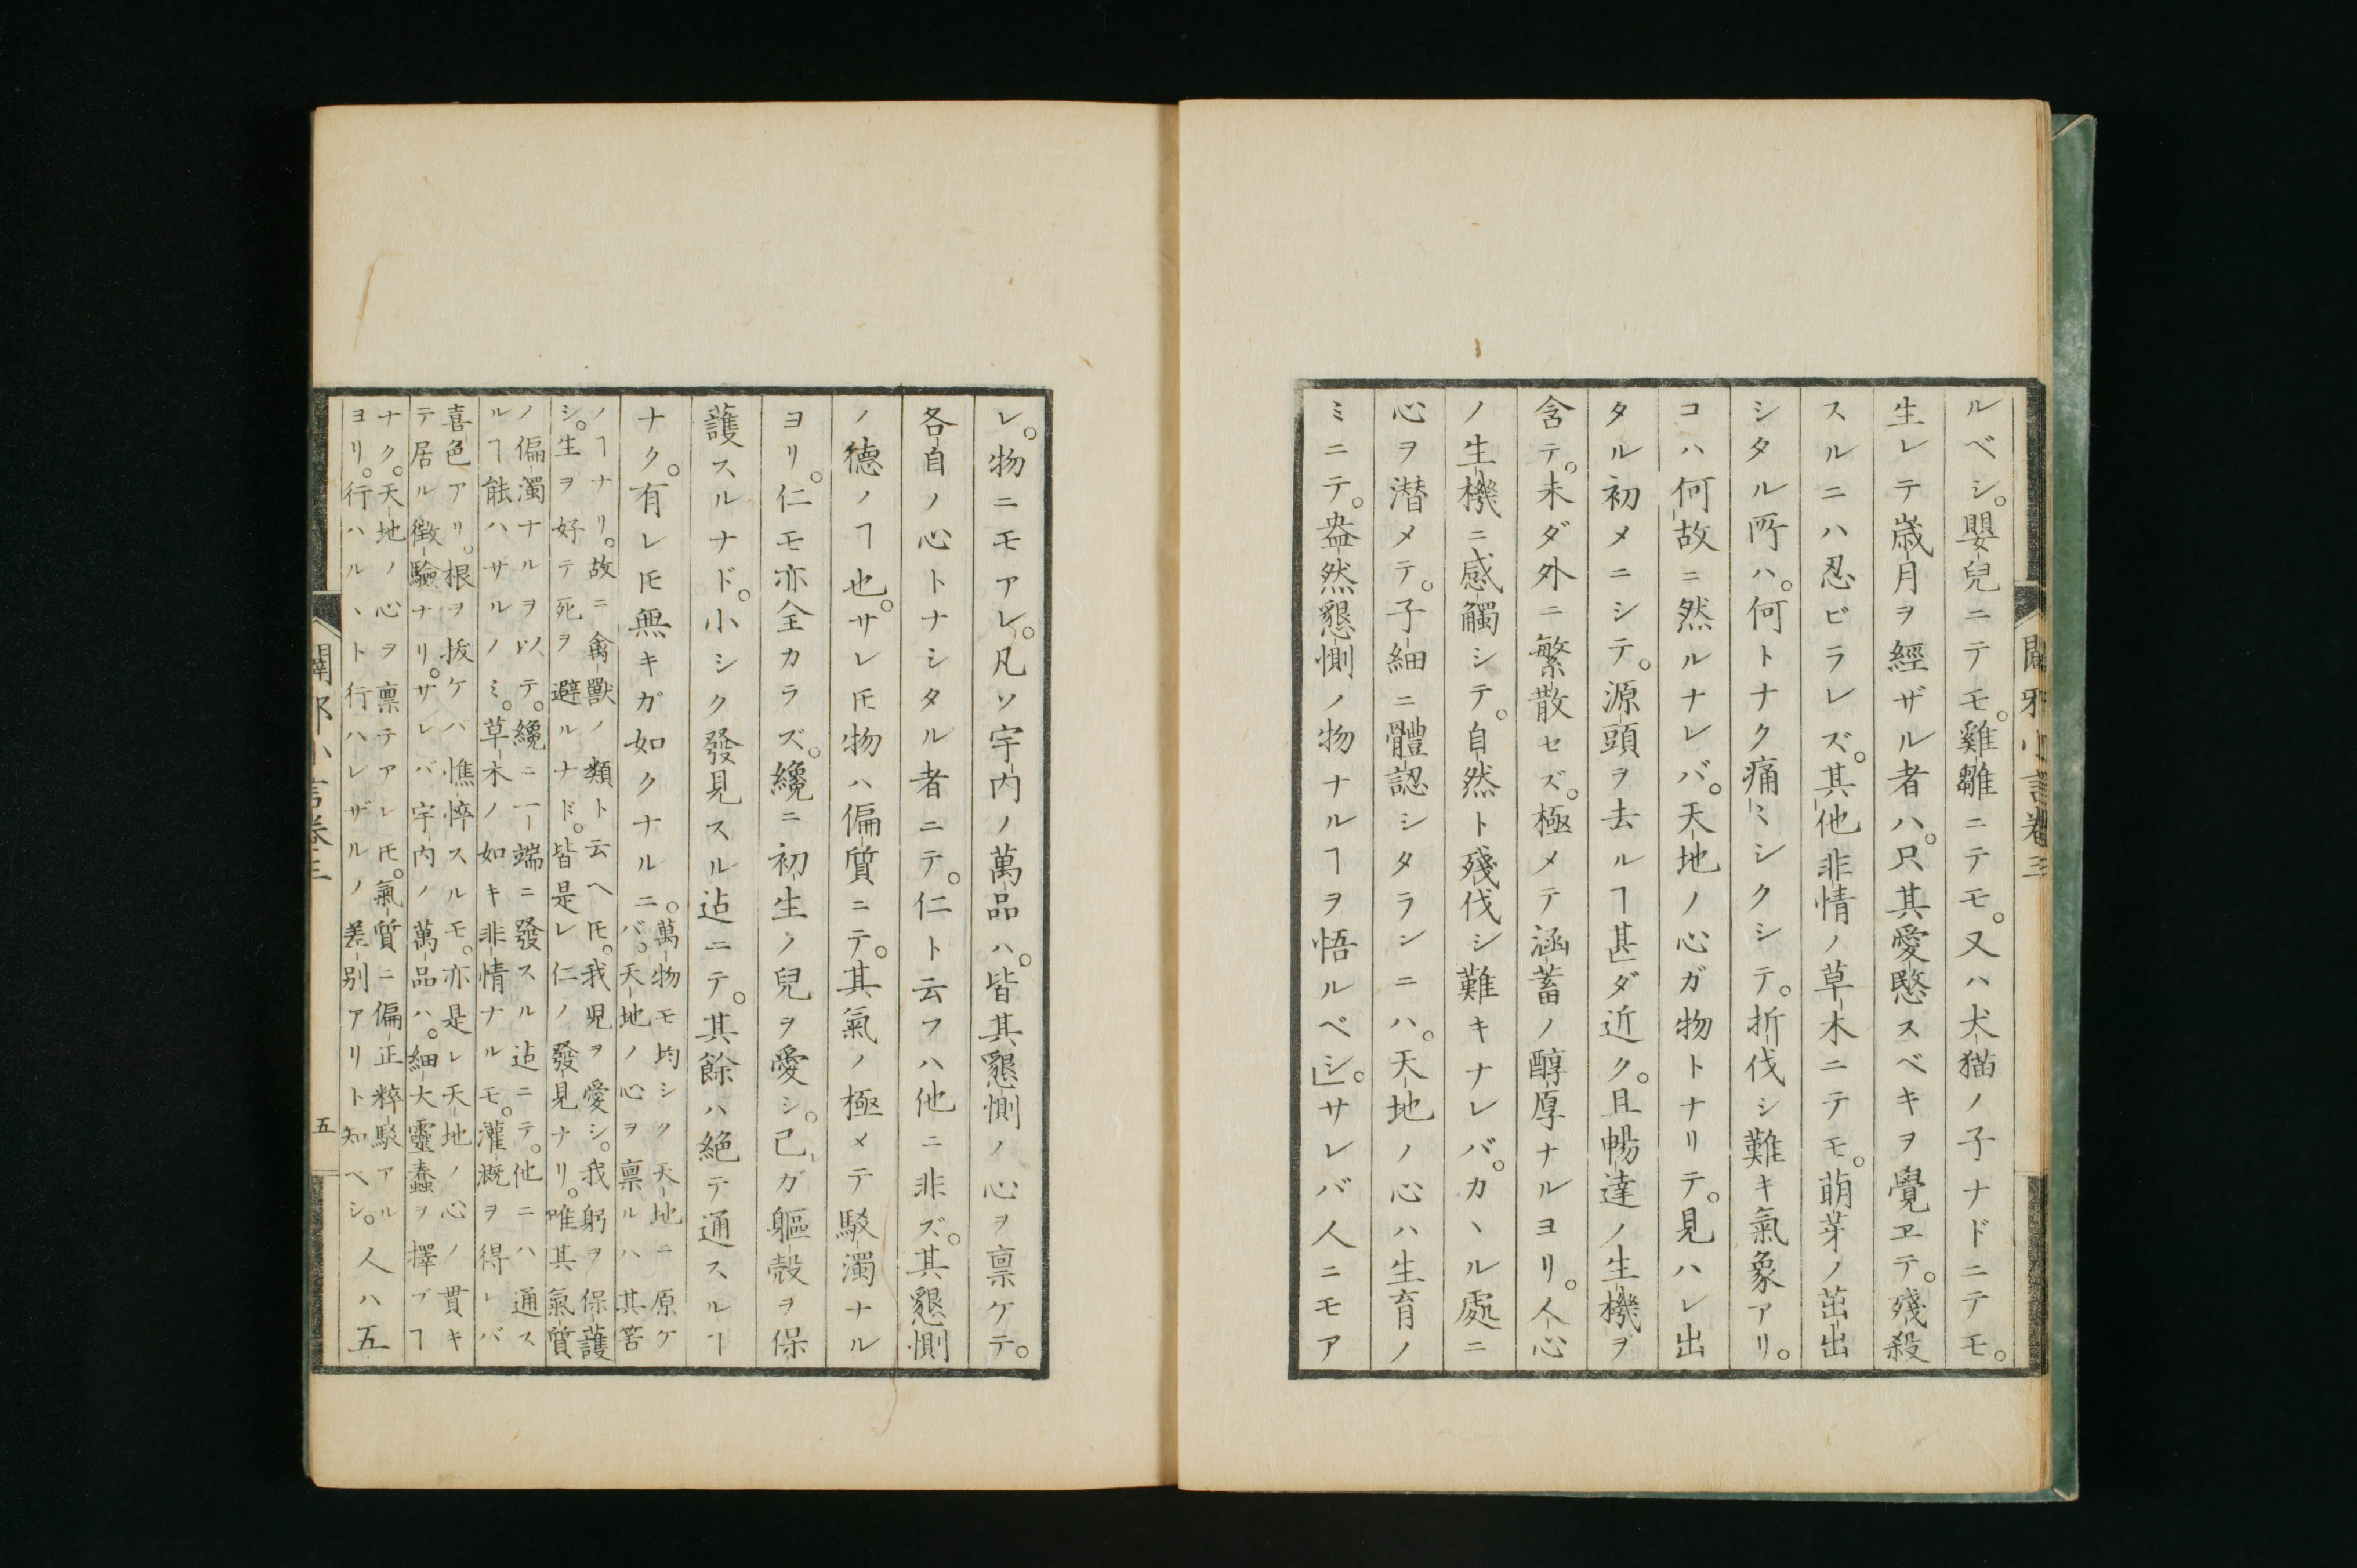 闢邪小言卷三
ルベシ。嬰兒ニテモ。雞雛ニテモ。又ハ犬猫ノ子ナドニテモ。
生レテ歳月ヲ經ザル者ハ。只其愛愍スベキヲ覺ヱテ。殘殺
スルニハ忍ビラレズ。其他非情ノ草木ニテモ。萌芽ノ茁出
シタル所ハ。何トナク痛ミシクシテ。折伐シ難キ氣象アリ。
コハ何故ニ然ルナレバ。天地ノ心ガ物トナリテ。見ハレ出
タル初メニシテ。源頭ヲ去ルヿ甚ダ近ク。且暢達ノ生機ヲ
含テ。未ダ外ニ繁散セズ。極メテ涵蓄ノ醇厚ナルヨリ。人心
ノ生機ニ感觸シテ。自然ト殘伐シ難キナレバ。カヽル處ニ
心ヲ潛メテ。子細ニ體認シタランニハ。天地ノ心ハ生育ノ
ミニテ。盎然懇惻ノ物ナルヿヲ悟ルベシ」。サレバ人ニモア
レ。物ニモアレ。凡ソ宇内ノ萬品ハ。皆其懇惻ノ心ヲ禀ケテ。
各自ノ心トナシタル者ニテ。仁ト云フハ他ニ非ズ。其懇惻
ノ德ノヿ也。サレ𪜈物ハ偏質ニテ。其氣ノ極メテ駁濁ナル
ヨリ。仁モ亦全カラズ。纔ニ初生ノ兒ヲ愛シ。己ガ軀殻ヲ保
護スルナド。小シク發見スル迠ニテ。其餘ハ絶テ通スルヿ
ナク。有レ𪜈無キガ如クナルニ。
萬物モ均シク天地ニ原ケ
バ。天地ノ心ヲ禀ルハ其筈
ノヿナリ。故ニ禽獸ノ類ト云ヘ𪜈。我兒ヲ愛シ。我躬ヲ保護
シ。生ヲ好テ死ヲ避ルナド。皆是レ仁ノ發見ナリ。唯其氣質
ノ偏濁ナルヲ以テ。纔ニ一端ニ發スル迠ニテ。他ニハ通ス
ルヿ能ハザルノミ。草木ノ如キ非情ナルモ。灌漑ヲ得レバ
喜色アリ。根ヲ拔ケバ憔悴スルモ。亦是レ天地ノ心ノ貫キ
テ居ル徴驗ナリ。サレバ宇内ノ萬品ハ。細大靈蠢ヲ擇ブヿ
ナク。天地ノ心ヲ禀テアレ𪜈。氣質ニ偏正粹駁アル
ヨリ。行ハルヽト行ハレザルノ差別アリト知ベシ。
人ハ五
闢邪小言卷三
五